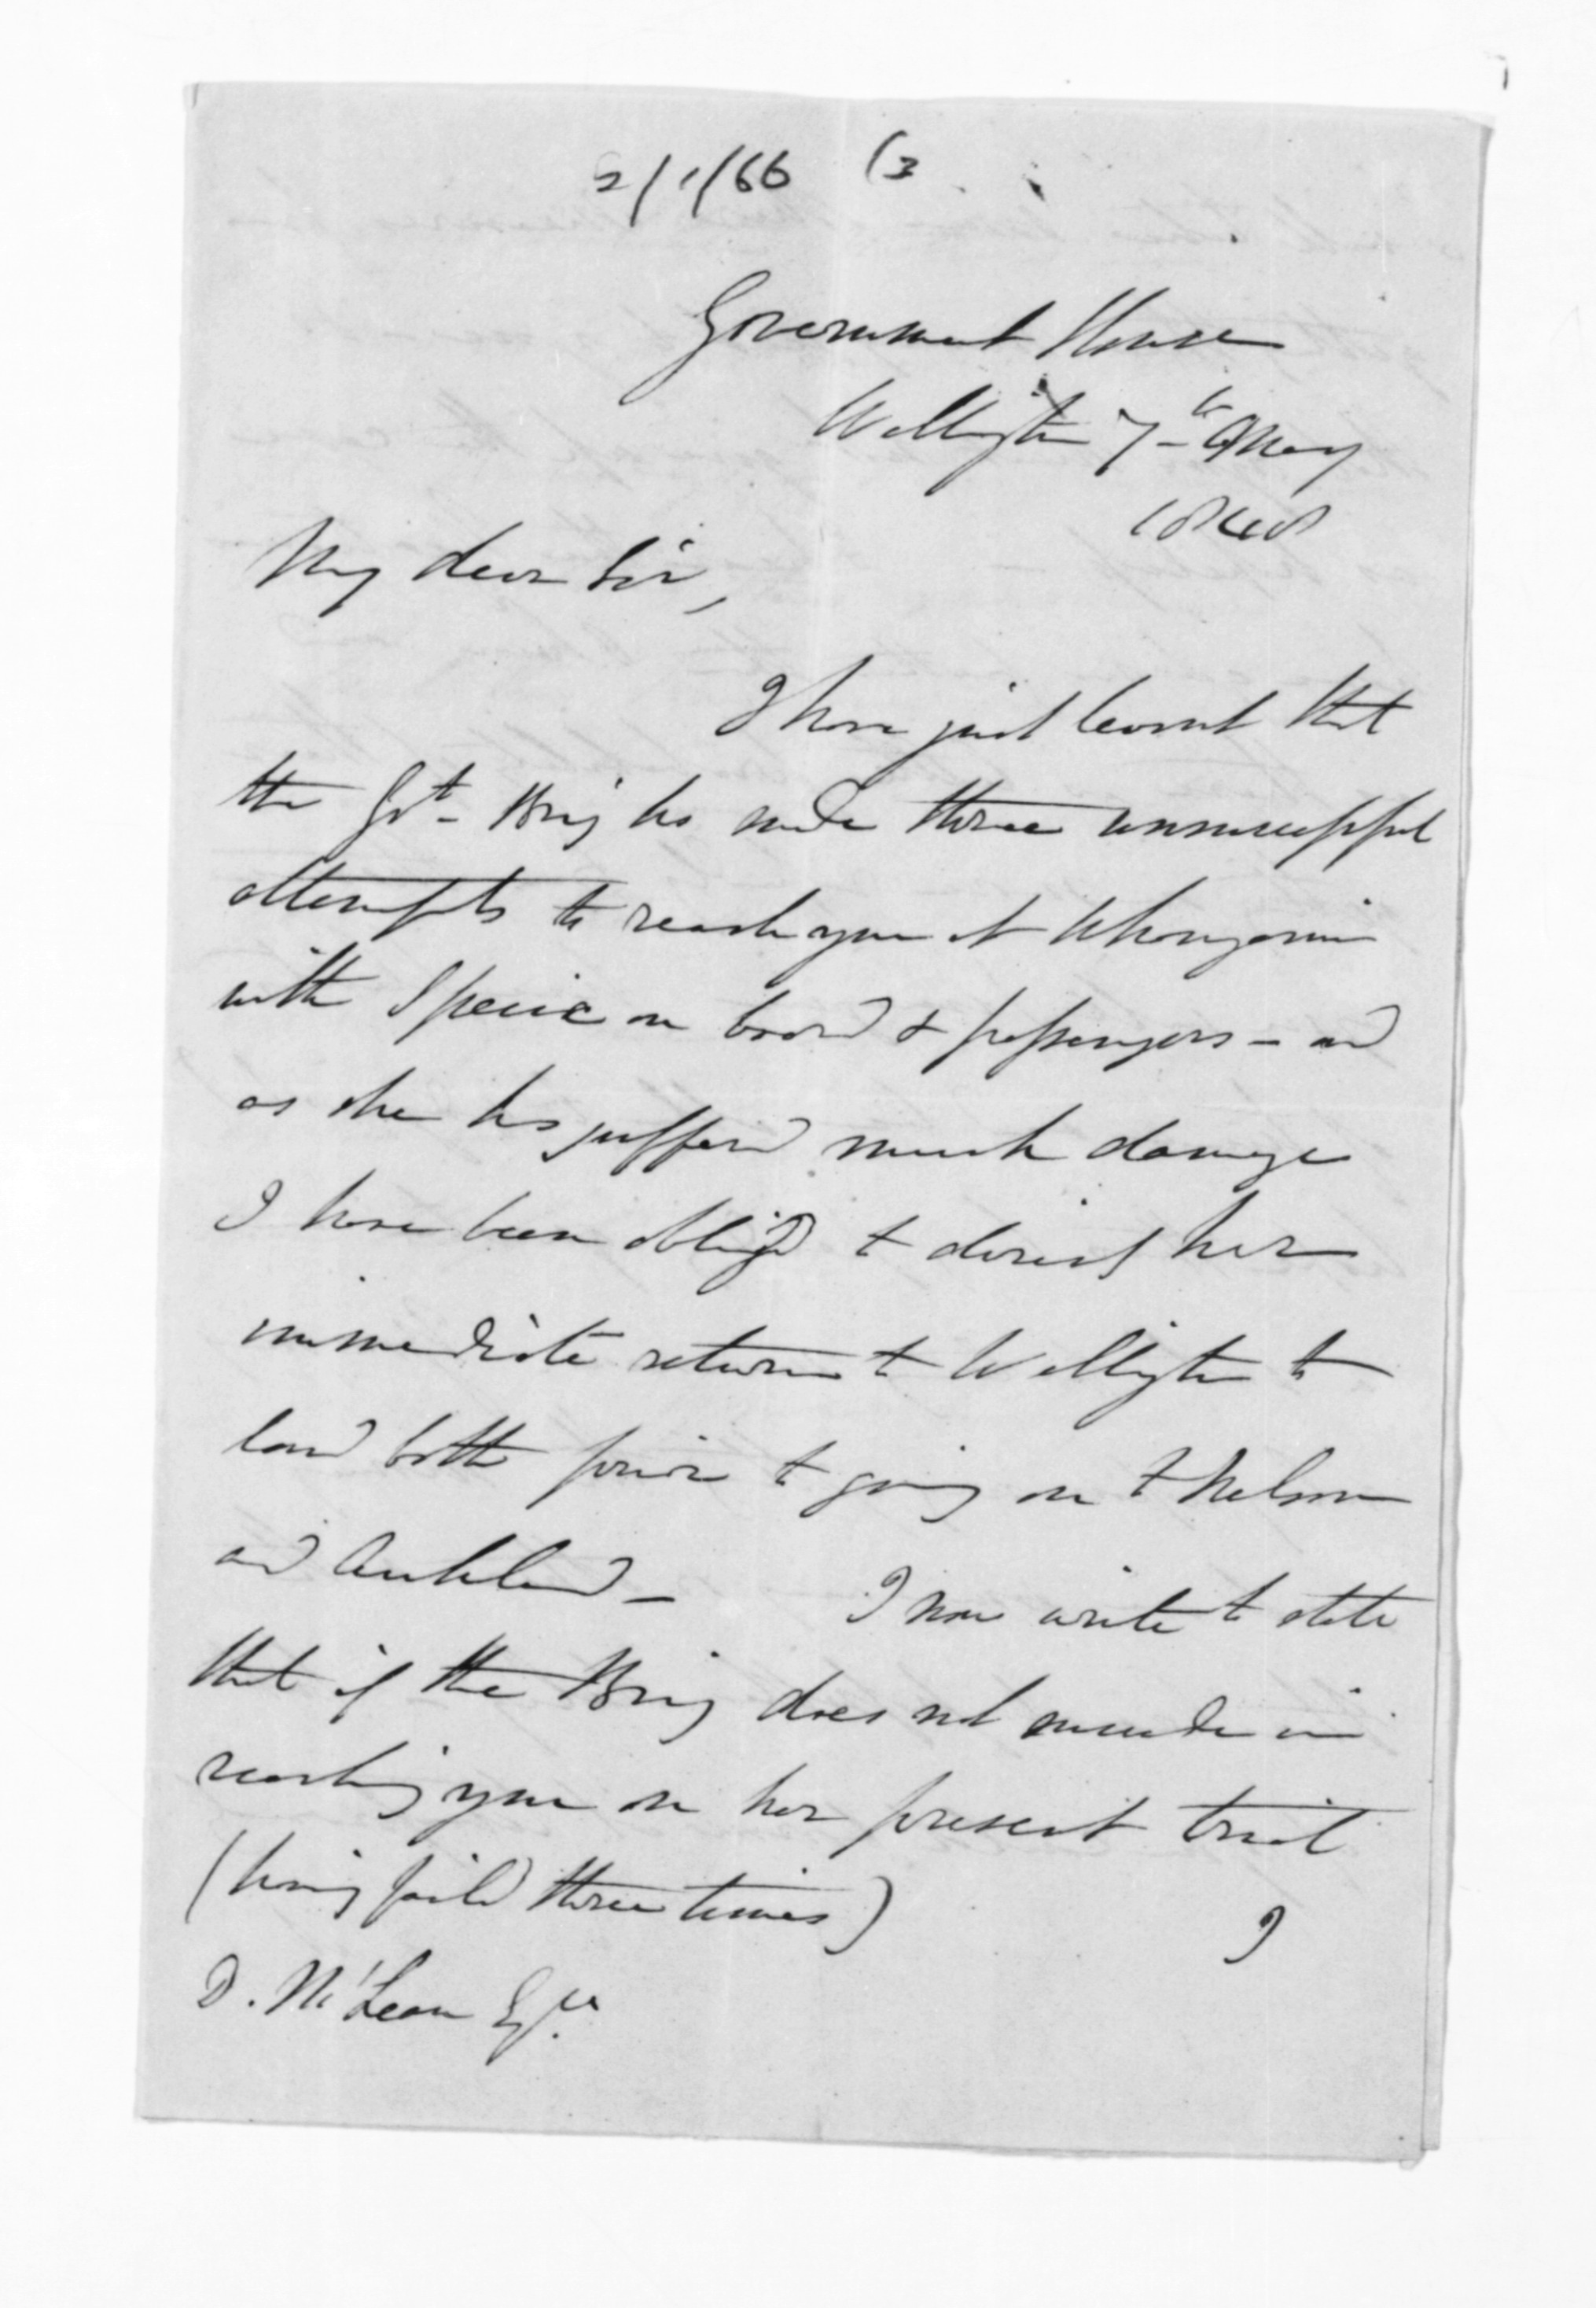 2/1/66 (3
Government House
Wellington 7th May
1848
My dear Sir,
I have just learnt that
the Gvt. Brig has made three unsuccessful
attempts to reach you at Whanganui
with Specie on board & passengers - and
as she has suffered much damage
I have been obliged to direct her
immediate return to Wellington to
land both prior to going on to Nelson
and Auckland - I now write to state
that if the Brig does not succeed in
reaching you on her present trial
(having failed three times) I
D. McLean Esqre.